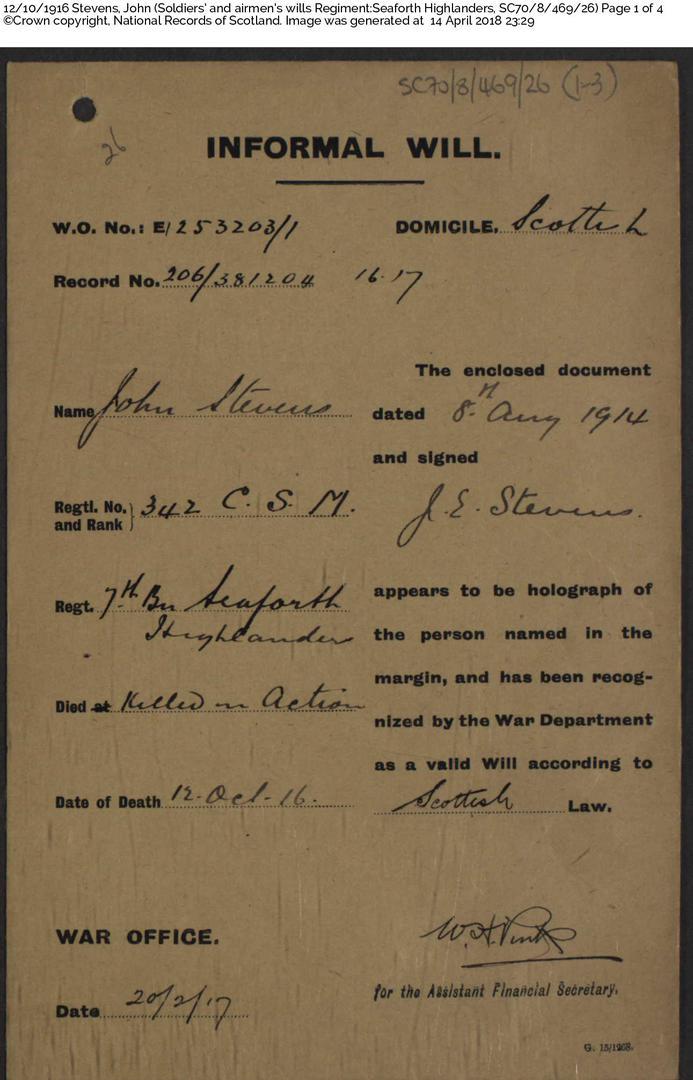 12/10/1916 Stevens, John (Soldiers' and airmen's wills Regiment:Seaforth Highlanders, SC70/8/469/26) Page 1 of 4
©Crown copyright, National Records of Scotland. Image was generated at 14 April 2018 23:29
SC70/8/469/26 (1-3)
26
INFORMAL WILL.
W.O. No.: E/253203/1
DOMICILE. Scottish
Record No. 206/381204 16.17
The enclosed document
Name John Stevens
dated 8th Aug 1914
and signed
Regtl. No. and Rank } 342 C. S. M.
J. E. Stevens.
Regt. 7th Bn Seaforth
Highlanders
appears to be holograph of
the person named in the
margin, and has been recog-
Died at Killed in Action
nized by the War Department
as a valid Will according to
Date of Death 12-Oct-16.
Scottish Law.
WAR OFFICE.
W.H.
for the Assistant Financial Secretary.
Date 20/2/17
G. 15/1268.